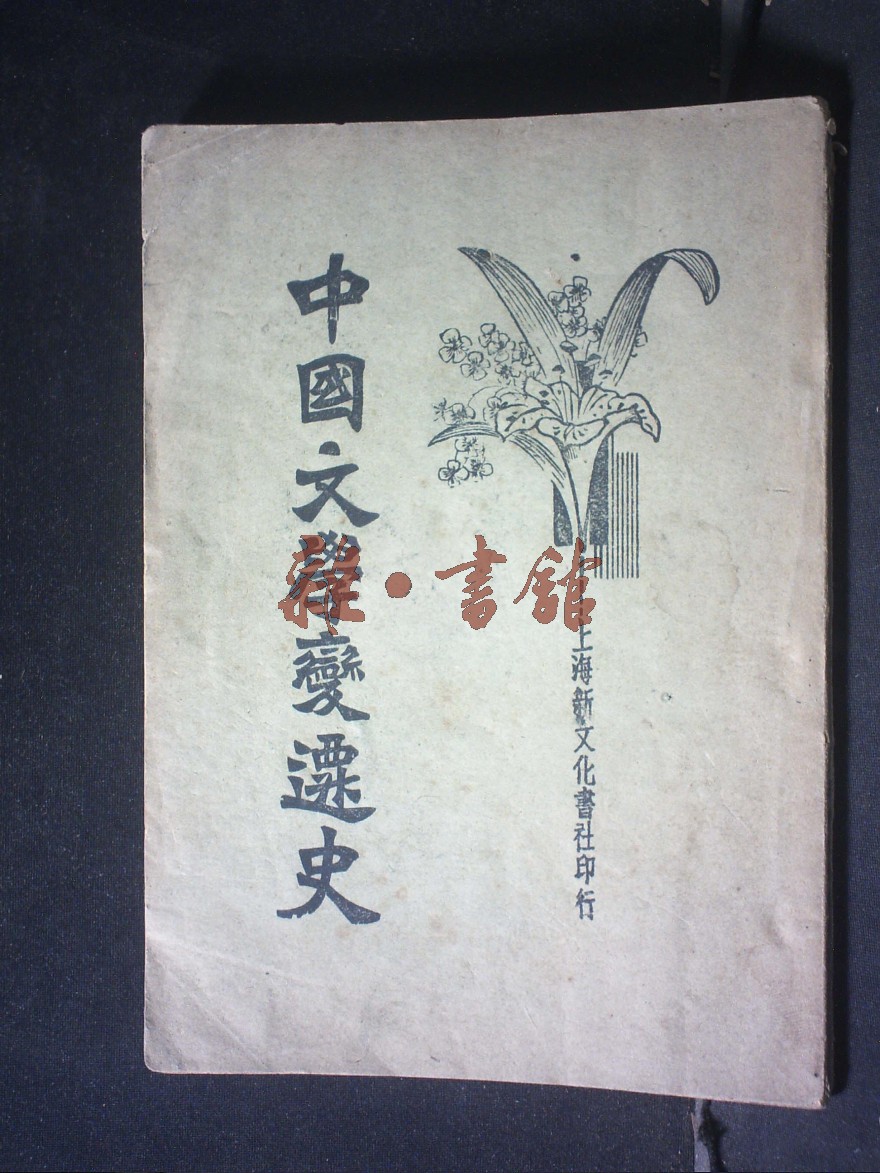 中國文學變遷史
上海新文化書社印行
雜·書館